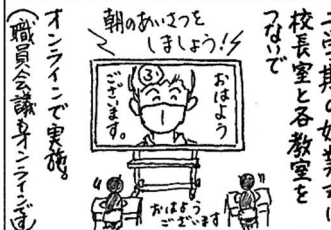 校長室と各教室を
つないで
朝のあいさつを
しましょう!!
③
おはよう
ございます。
おはよう
ございます
オンラインで実施。
(職員会議もオンラインです)